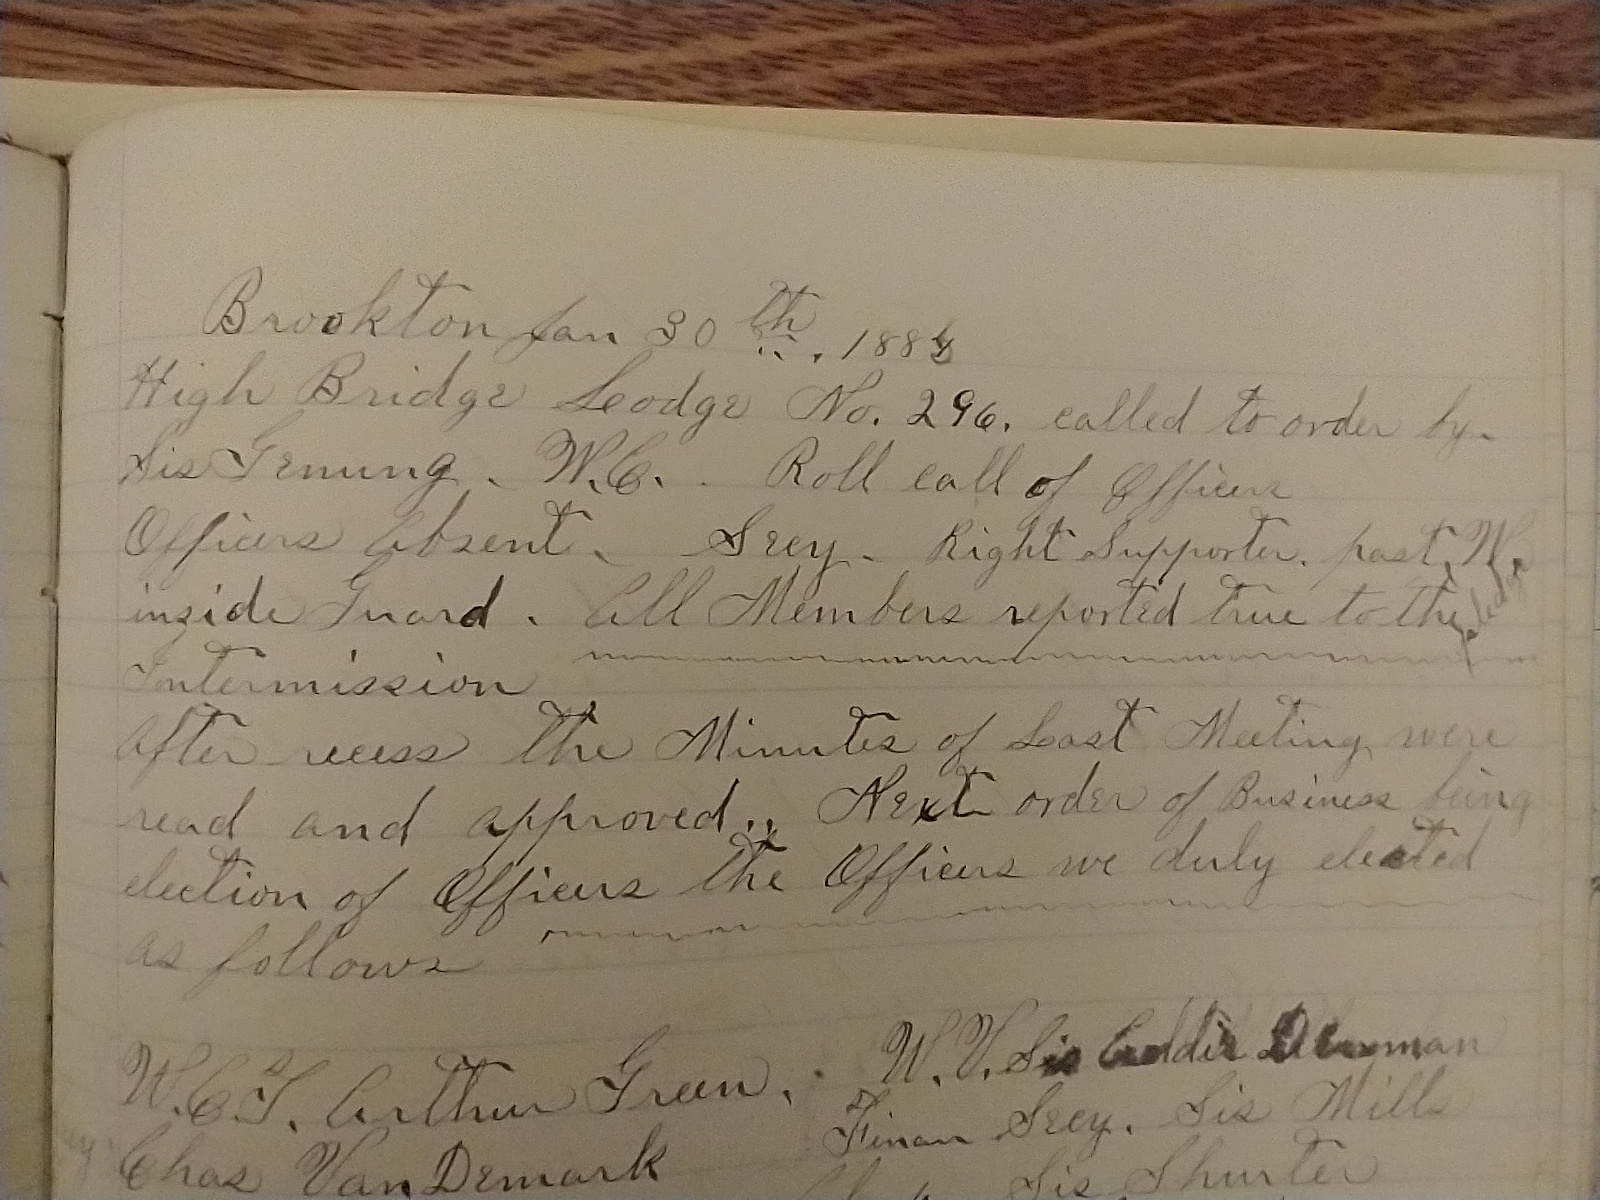 Brookton Jan 30 th, 188
High Bridge Lodge No. 296, called to order by.
Sis Tenung. W.C. Roll call of Officers
Officers absent. Secy. Right Supporter, past W
inside Guard. All Members reported true to the pledge
intermission
After recess the Minutes of Last Meeting were
read and approved. Next order of Business being
election of Officers the Officers we duly elected
as follows
W.C.T. Arthur Green. W.V. Sis Addie
Secy. Sis Mills
Chas VanDemark Sis